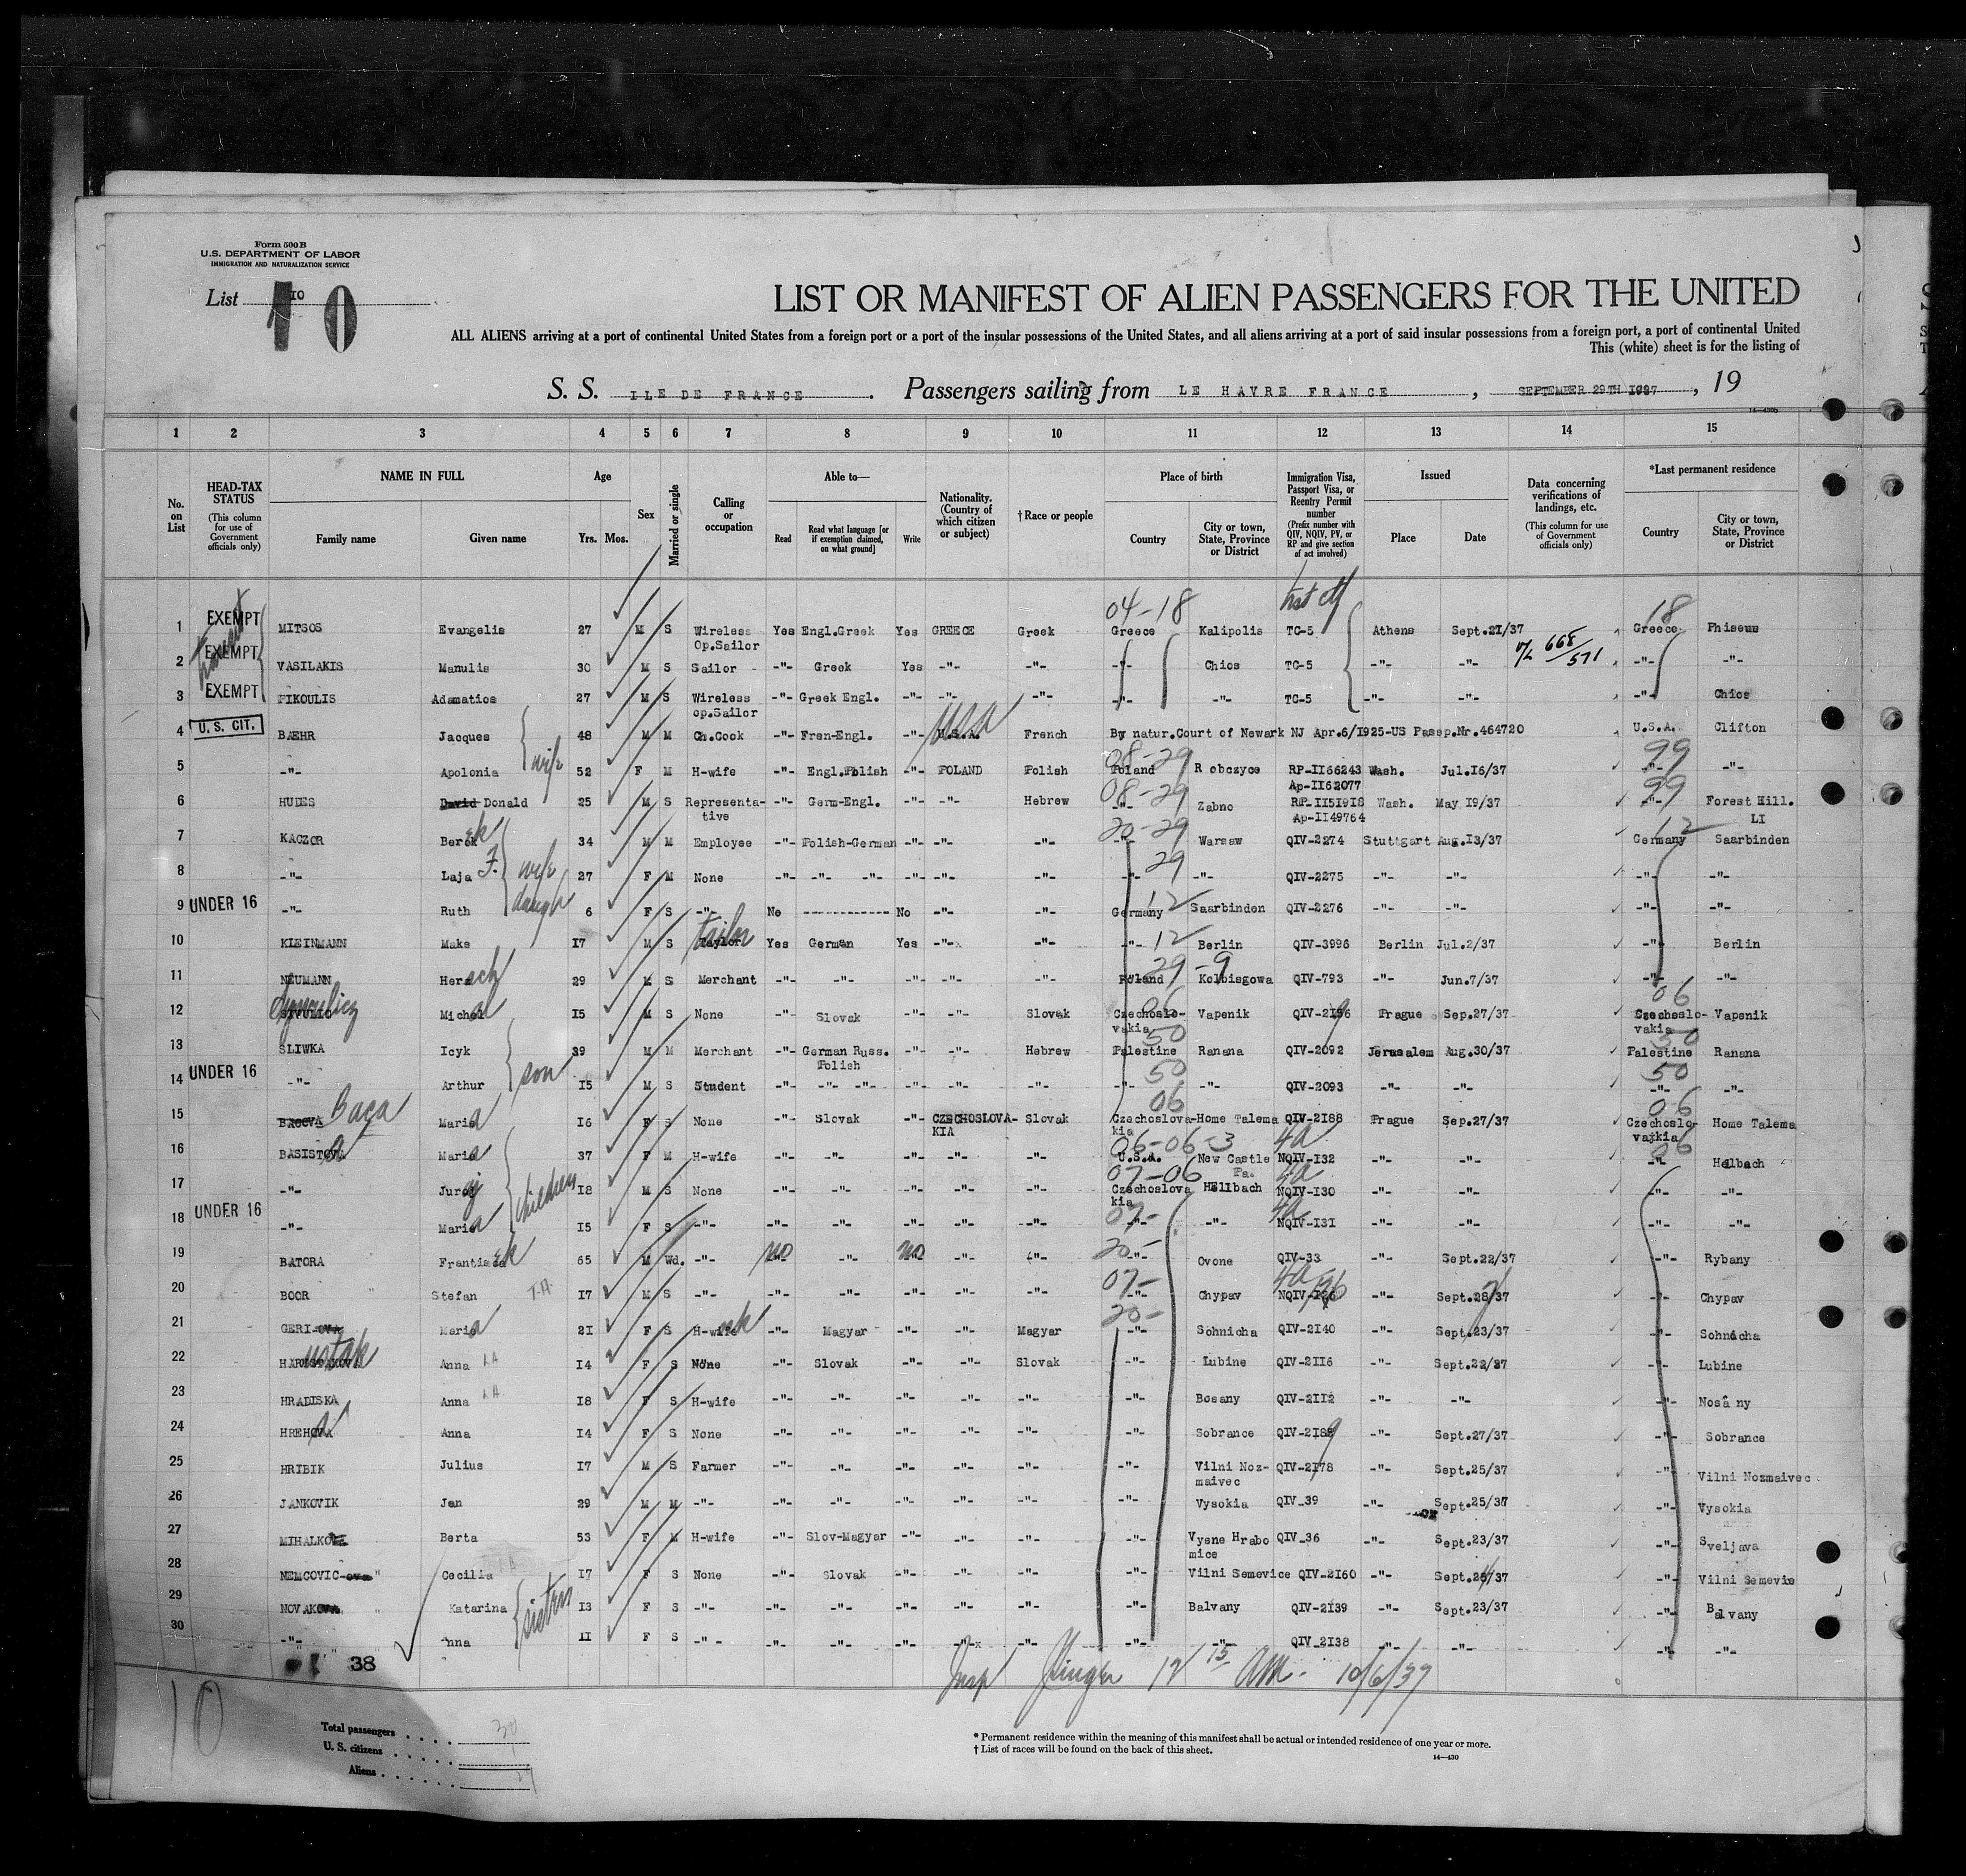 Form 500 B
U.S. DEPARTMENT OF LABOR
IMMIGRATION AND NATURALIZATION SERVICE
List IO 10
LIST OR MANIFEST OF ALIEN PASSENGERS FOR THE UNITED
ALL ALIENS arriving at a port of continental United States from a foreign port or a port of the insular possessions of the United States, and all aliens arriving at a port of said insular possessions from a foreign port, a port of continental United
This (white) sheet is for the listing of
S. S. ILE DE FRANCE . Passengers sailing from LE HAVRE FRANCE , SEPTEMBER 29TH I937 , 19
14—430b
1 2 3 4 5 6 7 8 9 10 11 12 13 14 15
No. on List
HEAD-TAX STATUS (This column for use of Government officials only)
NAME IN FULL Family name Given name
Age Yrs. Mos.
Sex
Married or single
Calling or occupation
Able to— Read Read what language [or if exemption claimed, on what ground] Write
Nationality. (Country of which citizen or subject)
† Race or people
Place of birth Country City or town, State, Province or District
Immigration Visa, Passport Visa, or Reentry Permit number (Prefix number with QIV, NQIV, PV, or RP and give section of act involved)
Issued Place Date
Data concerning verifications of landings, etc. (This column for use of Government officials only)
*Last permanent residence Country City or town, State, Province or District
04-18 18
1 EXEMPT MITSOS Evangelis 27 M S Wireless Op.Sailor Yes Engl.Greek Yes GREECE Greek Greece Kalipolis TC-5 Athens Sept.2I/37 Greece Phiseus
2 EXEMPT VASILAKIS Manulis 30 M S Sailor -"- Greek Yes -"- -"- -"- Chios TC-5 -"- -"- V/L 668/571 -"- -"-
3 EXEMPT FIKOULIS Adamatios 27 M S Wireless op.Sailor -"- Greek Engl. -"- -"- -"- -"- -"- TC-5 -"- -"- -"- Chios
4 U. S. CIT. BAEHR Jacques 48 M M Ch.Cook -"- Fren-Engl. -"- U.S.A. USA French By natur.Court of Newark NJ Apr.6/I925-US Passp.Nr.464720 U.S.A. Clifton
5 -"- Apolonia wife 52 F M H-wife -"- Engl.Polish -"- POLAND Polish Poland 08-29 Robczyce RP-II66243 Ap-II62077 Wash. Jul.I6/37 99 -"- -"-
6 HUDES David Donald 25 M S Representative -"- Germ-Engl. -"- -"- Hebrew 08-29 -"- Zabno RP-II5I9I8 Ap-II49764 Wash. May I9/37 99 -"- Forest Hill. LI
7 KACZOR Berek 34 M M Employee -"- Polish-German -"- -"- -"- 20-29 -"- Warsaw QIV-2274 Stuttgart Aug.I3/37 Germany 12 Saarbinden
8 -"- Laja F. wife 27 F M None -"- -"- -"- -"- -"- -"- 29 -"- -"- QIV-2275 -"- -"- -"- -"-
9 UNDER 16 -"- Ruth daugh 6 F S -"- No ------------ No -"- -"- Germany 12 Saarbinden QIV-2276 -"- -"- -"- -"-
10 KLEINMANN Maks I7 M S Taylor tailor Yes German Yes -"- -"- -"- 12 Berlin QIV-3996 Berlin Jul.2/37 -"- Berlin
11 NEUMANN Hersch 29 M S Merchant -"- -"- -"- -"- -"- 29-9 Poland Kolbisgowa QIV-793 -"- Jun.7/37 -"- -"-
12 Michal I5 M S None -"- Slovak -"- -"- Slovak 06 Czechoslovakia Vapenik QIV-2I96 Prague Sep.27/37 06 Czechoslovakia Vapenik
13 SLIWKA Icyk 39 M M Merchant -"- German Russ. Polish -"- -"- Hebrew 50 Palestine Ranana QIV-2092 Jerusalem Aug.30/37 50 Palestine Ranana
14 UNDER 16 -"- Arthur son I5 M S Student -"- -"- -"- -"- -"- -"- 50 -"- -"- QIV-2093 -"- -"- 50 -"- -"-
15 BACOVA Baca Maria I6 F S None -"- Slovak -"- CZECHOSLOVAKIA Slovak 06 Czechoslovakia Home Talema QIV-2I88 Prague Sep.27/37 06 Czechoslovakia Home Talema
16 BASISTOVA Maria 37 F M H-wife -"- -"- -"- -"- -"- 06-06-3 U.S.A. New Castle Pa. 4a NQIV-I32 -"- -"- 06 -"- Helbach
17 -"- Juraj children I8 M S None -"- -"- -"- -"- -"- 07-06 Czechoslovakia Hellbach 4a NQIV-I30 -"- -"- -"- -"-
18 UNDER 16 -"- Maria I5 F S -"- -"- -"- -"- -"- -"- 07- -"- -"- 4a NQIV-I3I -"- -"- -"- -"-
19 BATORA Frantisek 65 M Wd. -"- no -"- no -"- -"- 20- -"- Ovone QIV-33 -"- Sept.22/37 -"- Rybany
20 BOOR Stefan I7 M S -"- -"- -"- -"- -"- -"- 07- -"- Chypav 4a NQIV-I26 -"- Sept.28/37 -"- Chypav
21 GERI-OVA Maria 2I F S H-wife -"- Magyar -"- -"- Magyar 20- -"- Sohnicha QIV-2I40 -"- Sept.23/37 -"- Sohnicha
22 Anna I4 F S None -"- Slovak -"- -"- Slovak -"- Lubine QIV-2II6 -"- Sept.22/37 -"- Lubine
23 HRADISKA Anna I8 F S H-wife -"- -"- -"- -"- -"- -"- Bosany QIV-2II2 -"- -"- -"- Nosany
24 HREHOVA Anna I4 F S None -"- -"- -"- -"- -"- -"- Sobrance QIV-2I89 -"- Sept.27/37 -"- Sobrance
25 HRIBIK Julius I7 M S Farmer -"- -"- -"- -"- -"- -"- Vilni Nozmaivec QIV-2I78 -"- Sept.25/37 -"- Vilni Nozmaivec
26 JANKOVIK Jan 29 M M -"- -"- -"- -"- -"- -"- -"- Vysokia QIV-39 -"- Sept.25/37 -"- Vysokia
27 MIHALKO Berta 53 F M H-wife -"- Slov-Magyar -"- -"- -"- -"- Vysne Hrabomice QIV-36 -"- Sept.23/37 -"- Sveljava
28 NEMCOVIC-ova Cecilia I7 F S None -"- Slovak -"- -"- -"- -"- Vilni Semevice QIV-2I60 -"- Sept.24/37 -"- Vilni Semevie
29 NOVAKOVA Katarina sisters I3 F S -"- -"- -"- -"- -"- -"- -"- Balvany QIV-2I39 -"- Sept.23/37 -"- Balvany
30 -"- Anna II F S -"- -"- -"- -"- -"- -"- -"- -"- QIV-2I38 -"- -"- -"- -"-
38
Insp 12 15 AM. 10/6/37
10
Total passengers . . . . 30
U. S. citizens . . . . . 1
Aliens . . . . . . . 29
* Permanent residence within the meaning of this manifest shall be actual or intended residence of one year or more.
† List of races will be found on the back of this sheet.
14—430